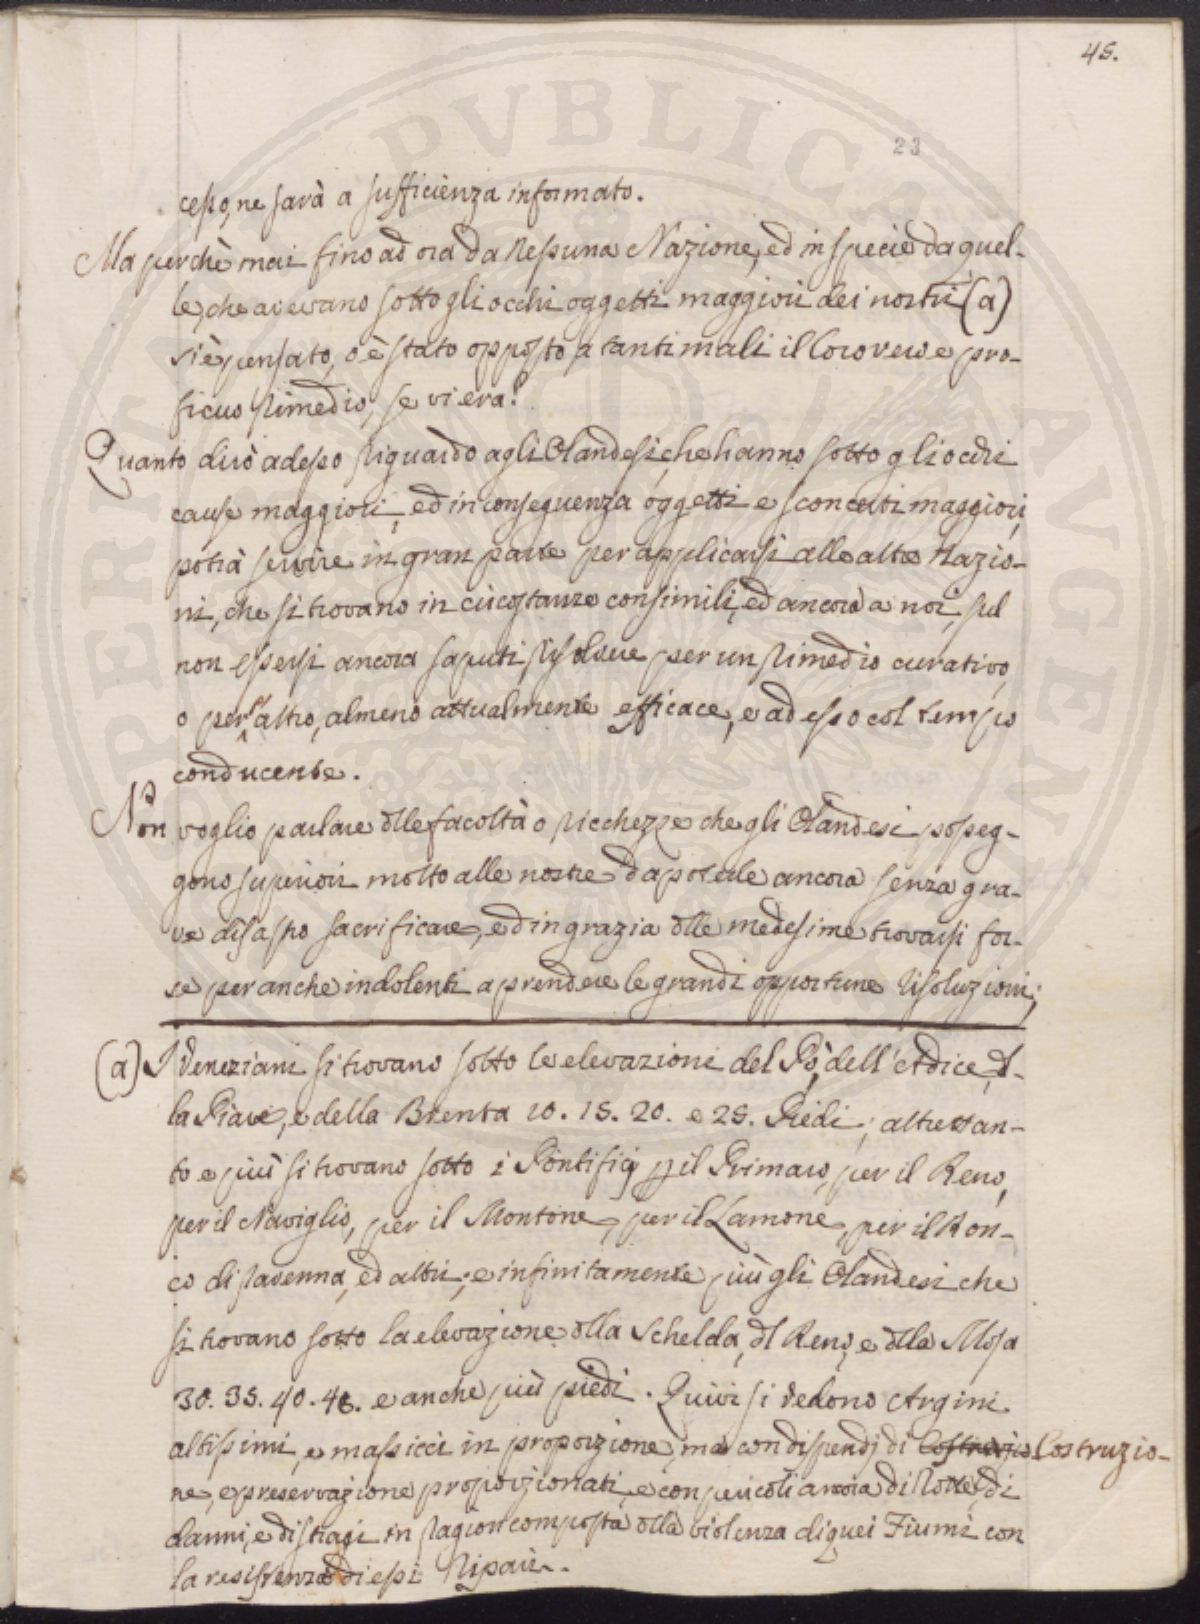 45.
23
cesso, ne sarà a sufficienza informato.
Ma perchè mai fino ad ora da Nessuna Nazione, ed in specie da quel-
le, che avevano sotto gli occhi oggetti maggiori dei nostri (a)
si è pensato, o è stato opposto a tanti mali il loro vero e pro-
ficuo Rimedio, se vi era?
Quanto dirò adesso Riguardo agli Olandesi, che hanno sotto gli occhi
cause maggiori, ed in conseguenza oggetti e sconcerti maggiori,
potrà servire in gran parte per applicarsi alle altre Nazio-
ni, che si trovano in circostanze consimili, ed ancora a noi, sul
non essersi ancora saputi Risolvere per un Rimedio curativo,
o per l'altro, almeno attualmente efficace, e ad esso col tempo
conducente.
Non voglio parlare dlle facoltà o Ricchezze che gli Olandesi posseg-
gono superiori molto alle nostre da poterle ancora senza gra-
ve disastro sacrificare, ed in grazia dlle medesime trovarsi for-
se per anche indolenti a prendere le grandi opportune Risoluzioni;
(a) I Veneziani si trovano sotto le elevazioni del Pò, dell'Adice, d-
la Piave, e della Brenta 10. 15. 20. e 25. Piedi; altrettan-
to e più si trovano sotto i Pontificj p il Primaro, per il Reno,
per il Naviglio, per il Montone, per il Lamone, per il Ron-
co di Ravenna, ed altri; e infinitamente più gli Olandesi che
si trovano sotto la elevazione dlla Schelda, dl Reno, e dlla Mosa
30. 35. 40. 45. e anche più piedi. Quivi si vedono Argini
altissimi, e massicci in proporzione, ma con dispendj di Costruzio-
ne, e preservazione proporzionati, e con pericoli ancora di Rotte, di
danni, e di stragi in Ragion composta dlla violenza di quei Fiumi con
la resistenza di essi Ripari.